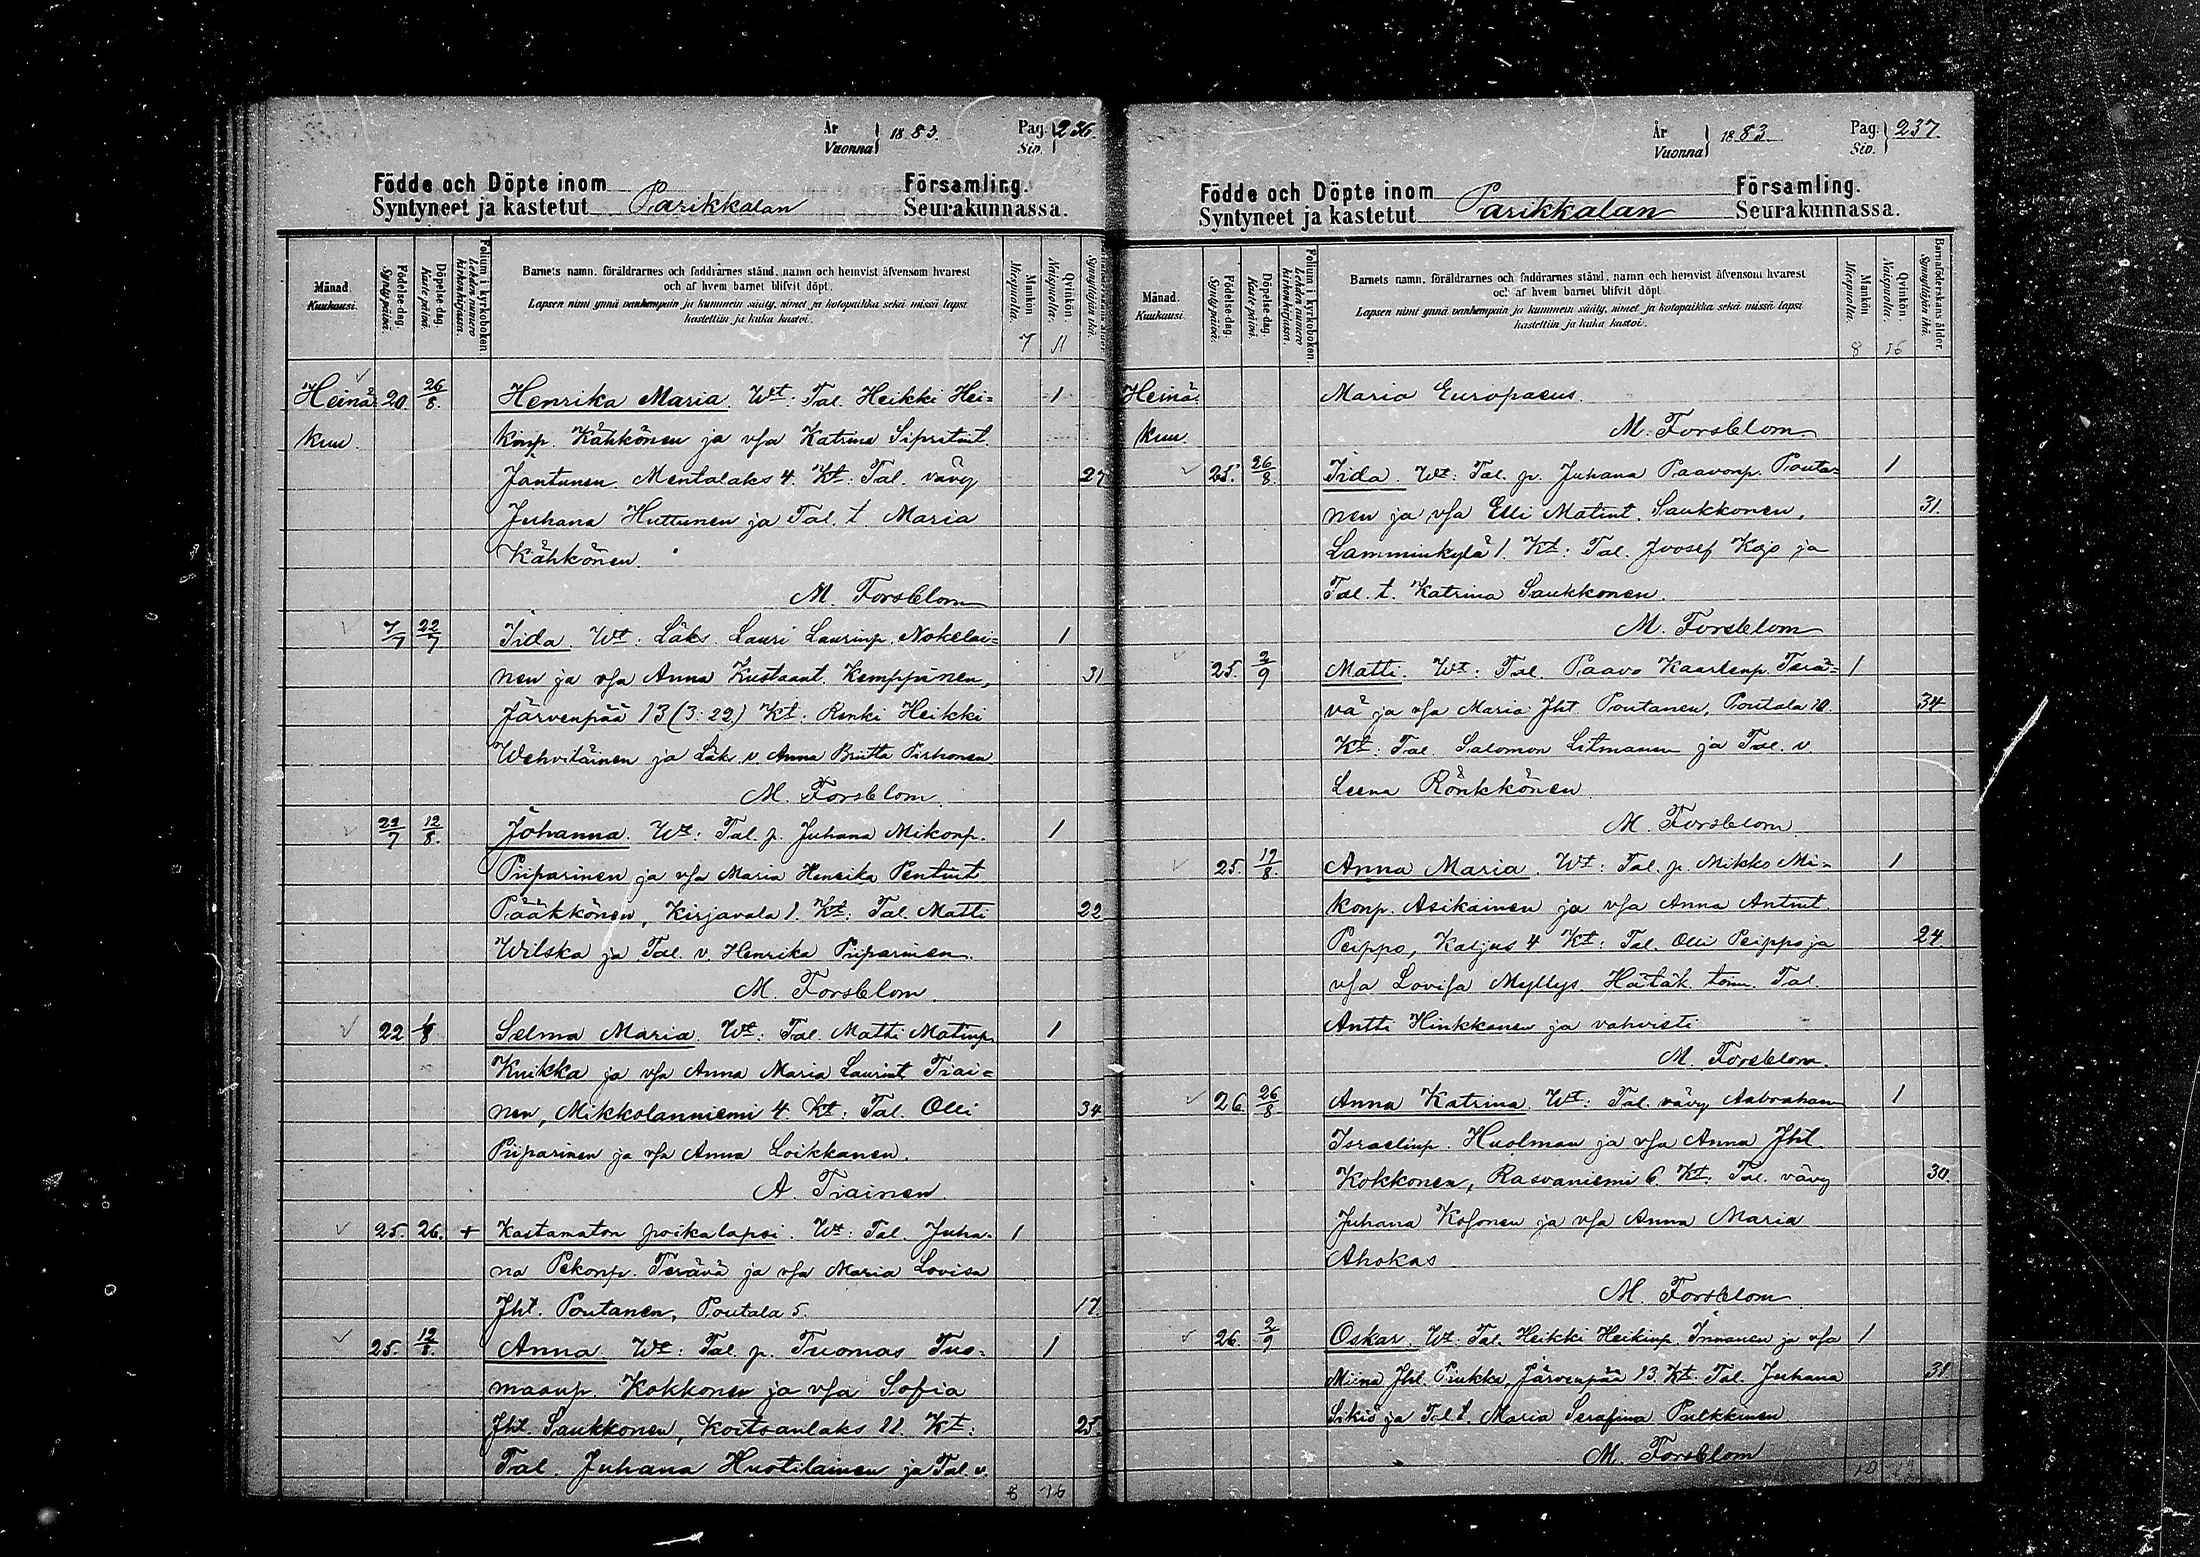 År
Vuonna } 1883. Pag. Siv. } 236.
Födde och Döpte inom Parikkalan Församling.
Syntyneet ja kastetut Seurakunnassa.
Månad. Kuukausi.
Födelse-dag. Syntypäivä.
Döpelse-dag. Kastepäivä.
Folium i kyrkoboken. Lehden numero kirkonkirjassa.
Barnets namn, föräldrarnes och faddrarnes stånd, namn och hemvist äfvensom hvarest
och af hvem barnet blifvit döpt.
Lapsen nimi ynnä vanhempain ja kummein sääty, nimet ja kotopaikka sekä missä lapsi
kastettiin ja kuka kastoi.
Mankön Miespuolta. 7
Qvinkön. Naispuolta. 11
Synnyttäjän ikä.
Heinä- 20 26/8. Henrika Maria. Wt: Tal. Heikki Hei= 1
kuu. kinp. Kähkönen ja vsa Katrina Sipritnt.
Jantunen Mentalaks 4. Kt: Tal. vävy 27
Juhana Huttunen ja Tal. t Maria
Kähkönen.
M. Forsblom
7/7 22/7 Iida. Wt: Läks. Lauri Laurinp. Nokelai= 1
nen ja vsa Anna Kustaant. Kemppinen, 31
Järvenpää 13 (3:22.) Kt: Renki Heikki
Wehviläinen ja Läks. v. Anna Britta Pirhonen
M. Forsblom.
22/7 12/8. Johanna. Wt: Tal. p. Juhana Mikonp. 1
Piiparinen ja vsa Maria Henrika Pentint.
Pääkkönen, Kirjavala 1. Kt: Tal. Matti 22
Wilska ja Tal. v. Henrika Piiparinen.
M. Forsblom.
22 1/8 Selma Maria. Wt: Tal. Matti Matinp. 1
Kuikka ja vsa Anna Maria Laurint. Tiai=
nen, Mikkolanniemi 4. Kt: Tal. Olli 34
Piiparinen ja vsa Anna Loikkanen.
A. Tiainen.
25. 26. + Kastamaton poikalapsi. Wt: Tal. Juha- 1
na Pekonp. Terävä ja vsa Maria Lovisa
Jht. Poutanen, Poutala 5. 17.
25. 12/8. Anna. Wt: Tal. p. Tuomas Tuo= 1
maanp. Kokkonen ja vsa Sofia
Jht. Saukkonen, Koitsanlaks 22. Kt: 25.
Tal. Juhana Huotilainen ja Tal. v.
8 16
År
Vuonna } 1883. Pag. Siv. } 237.
Födde och Döpte inom Parikkalan Församling.
Syntyneet ja kastetut Seurakunnassa.
Månad. Kuukausi.
Födelse-dag. Syntypäivä.
Döpelse-dag. Kastepäivä.
Folium i kyrkoboken. Lehden numero kirkonkirjassa.
Barnets namn, föräldrarnes och faddrarnes stånd, namn och hemvist äfvensom hvarest
och af hvem barnet blifvit döpt.
Lapsen nimi ynnä vanhempain ja kummein sääty, nimet ja kotopaikka sekä missä lapsi
kastettiin ja kuka kastoi.
Mankön Miespuolta. 8
Qvinkön. Naispuolta. 16
Barnaföderskans ålder. Synnyttäjän ikä.
Heinä- Maria Europaeus.
kuu. M. Forsblom.
25. 26/8. Iida. Wt: Tal. p. Juhana Paavonp. Pouta= 1
nen ja vsa Elli Matint. Saukkonen, 31.
Lamminkylä 1. Kt: Tal. Joosef Kojo ja
Tal. t. Katrina Saukkonen.
M. Forsblom
25. 2/9 Matti. Wt: Tal. Paavo Kaarlenp. Terä= 1
vä ja vsa Maria Jht. Poutanen, Poutala 10. 34
Kt: Tal. Salomon Litmanen ja Tal. v.
Leena Rönkkönen
M. Forsblom.
25. 19/8. Anna Maria. Wt: Tal. p. Mikko Mi= 1
konp. Asikainen ja vsa Anna Antint.
Peippo, Kaljus 4 Kt: Tal. Olli Peippo ja 24
vsa Lovisa Myllys. Hätäk. toim. Tal.
Antti Hinkkanen ja vahvisti
M. Forsblom.
26. 26/8. Anna Katrina. Wt: Tal. vävy Aabraham 1
Israelinp. Huolman ja vsa Anna Jht.
Kokkonen, Rasvaniemi 6. Kt: Tal. vävy 30.
Juhana Kosonen ja vsa Anna Maria
Ahokas
M. Forsblom.
26. 2/9 Oskar. Wt: Tal. Heikki Heikinp. Innanen ja vsa 1
Miina Jht. Puukka, Järvenpää 13. Kt. Tal. Juhana 31.
Sikiö ja Tal. t. Maria Serafina Pulkkinen
M. Forsblom
10